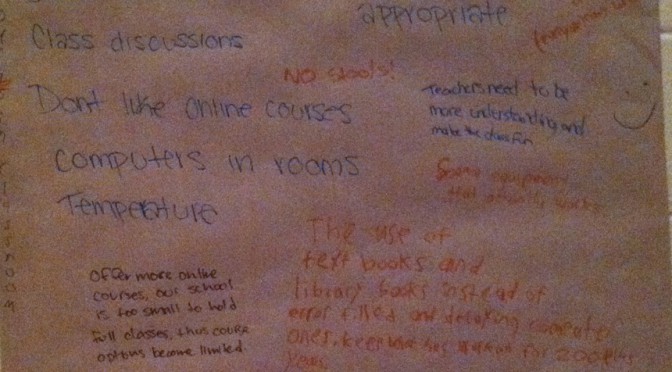 appropriate
Class discussions
NO stools!
Dont like online courses
Teachers need to be
more understanding and
make the class fun
computers in rooms
Some equipment
that actually works
Temperature
The use of
text books and
library books instead of
error filled and
ones.
for 200 plus
years.
Offer more online
courses, our school
is too small to hold
full classes, thus course
options become limited.